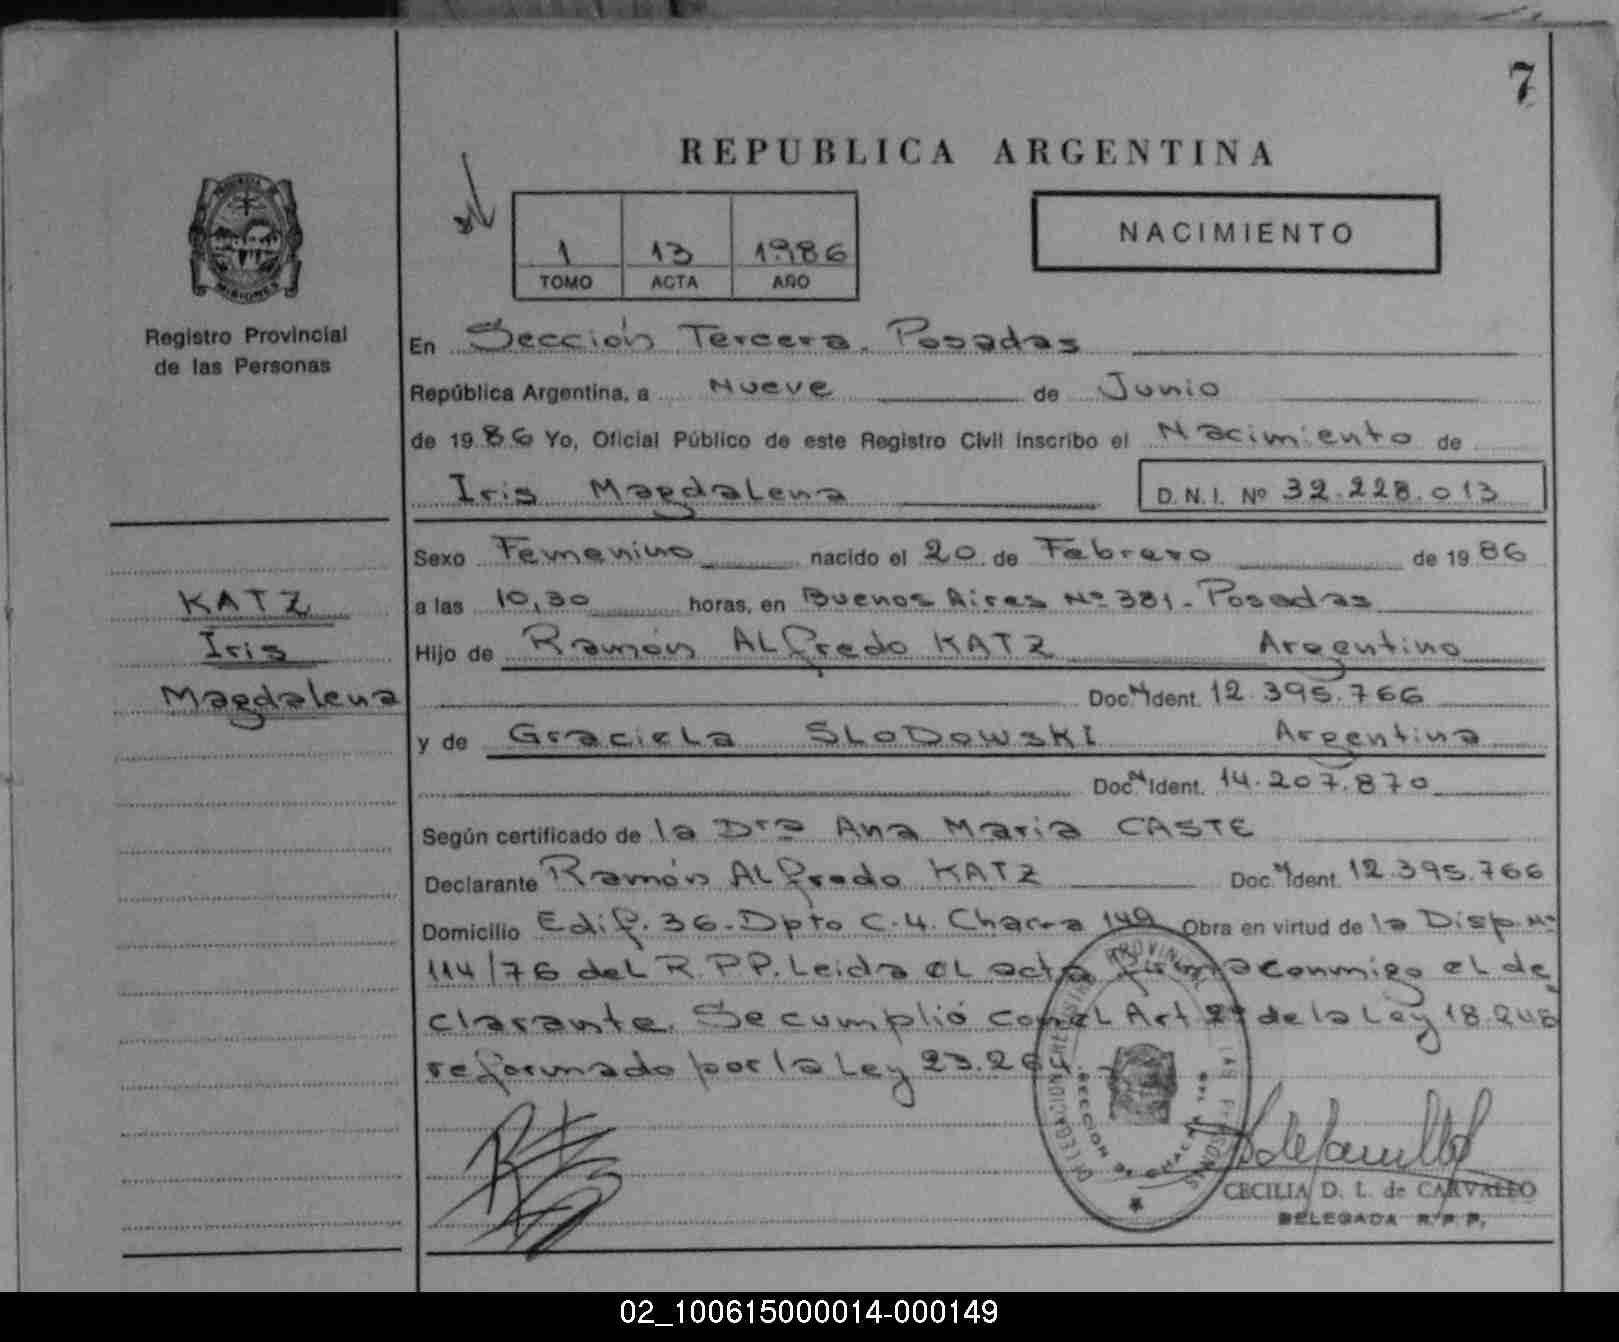 7
REPUBLICA ARGENTINA
MISIONES
Registro Provincial
de las Personas
1 13 1986
TOMO ACTA AÑO
NACIMIENTO
En Sección Tercera. Posadas
República Argentina, a Nueve de Junio
de 1986 Yo, Oficial Público de este Registro Civil inscribo el Nacimiento de
Iris Magdalena D.N.I. Nº 32.228.013
Sexo Femenino nacido el 20 de Febrero de 1986
KATZ
Iris
Magdalena
a las 10,30 horas, en Buenos Aires Nº 381 - Posadas
Hijo de Ramón Alfredo KATZ Argentino
Doc. N Ident. 12.395.766
y de Graciela SLODOWSKI Argentina
Doc. N Ident. 14.207.870
Según certificado de la Dra Ana Maria CASTE
Declarante Ramón Alfredo KATZ Doc. N Ident. 12.395.766
Domicilio Edif. 36 - Dpto C. 4. Chacra 149 Obra en virtud de la Disp. Nº
114/76 del R.P.P. Leida el acta firma conmigo el de
clarante. Se cumplió con el Art 2º de la Ley 18.248
reformado por la Ley 23.264.
CECILIA D. L. de CARVALLO
DELEGADA R.P.P.
02_100615000014-000149